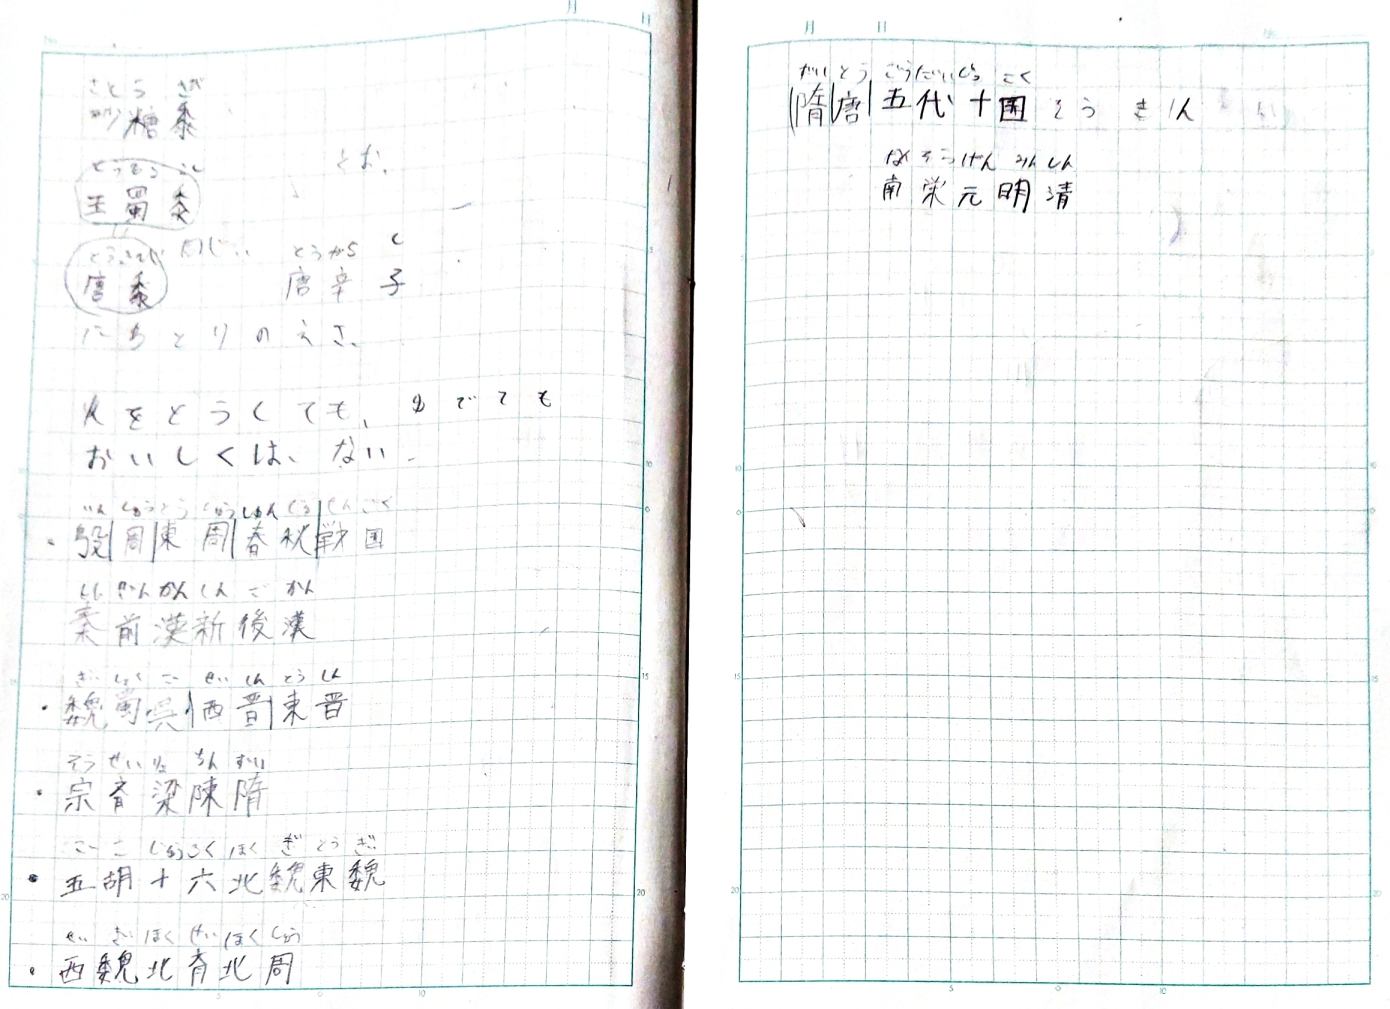 月 日
さとう きび
砂糖黍
とうもろこし
玉蜀黍
とお、
とうきび 同じ
唐黍
とうがらし
唐辛子
にわとりのえさ、
火をとうしても、ゆでても
おいしくは、ない。
いん しゅう とう しゅう しゅん じゅう せん ごく
・殷|周|東周|春秋|戦国
しん ぜん かん しん ご かん
秦前漢新後漢
ぎ しょく ご せい しん とう しん
・魏蜀呉|西晋|東晋
そう せい りょ ちん ずい
・宗斉梁陳隋
ご こ じゅうろく ほく ぎ とう ぎ
・五胡十六北魏東魏
せい ぎ ほく せい ほく しゅう
・西魏北斉北周
月 日
ずい とう ごうだいじっ こく
(隋|唐|五代十国そうきん
なん そう げん みん しん
南栄元明清